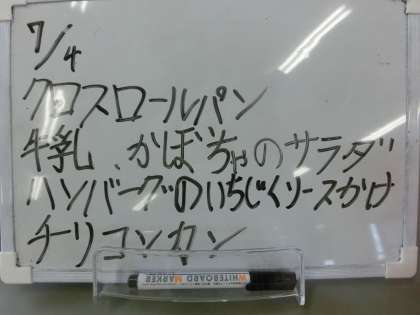 7/4
クロスロールパン
牛乳、かぼちゃのサラダ
ハンバーグのいちじくソースかけ
チリコンカン
WHITEBOARD MARKER